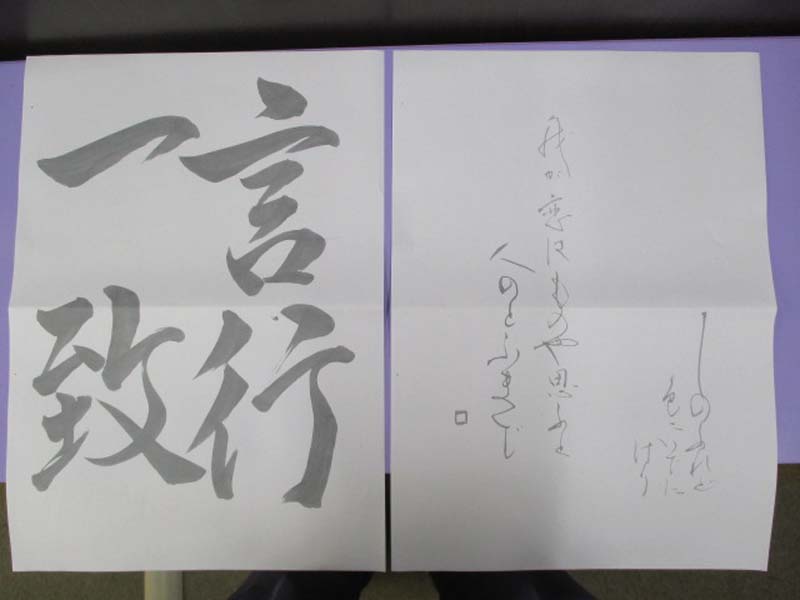 言行
一致
しのふれど
色にいでに
けり
我が恋はものや思ふと
人のとふまで